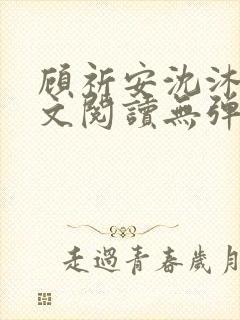 顧祈安沈沐
文閱讀無彈
走過青春歲月